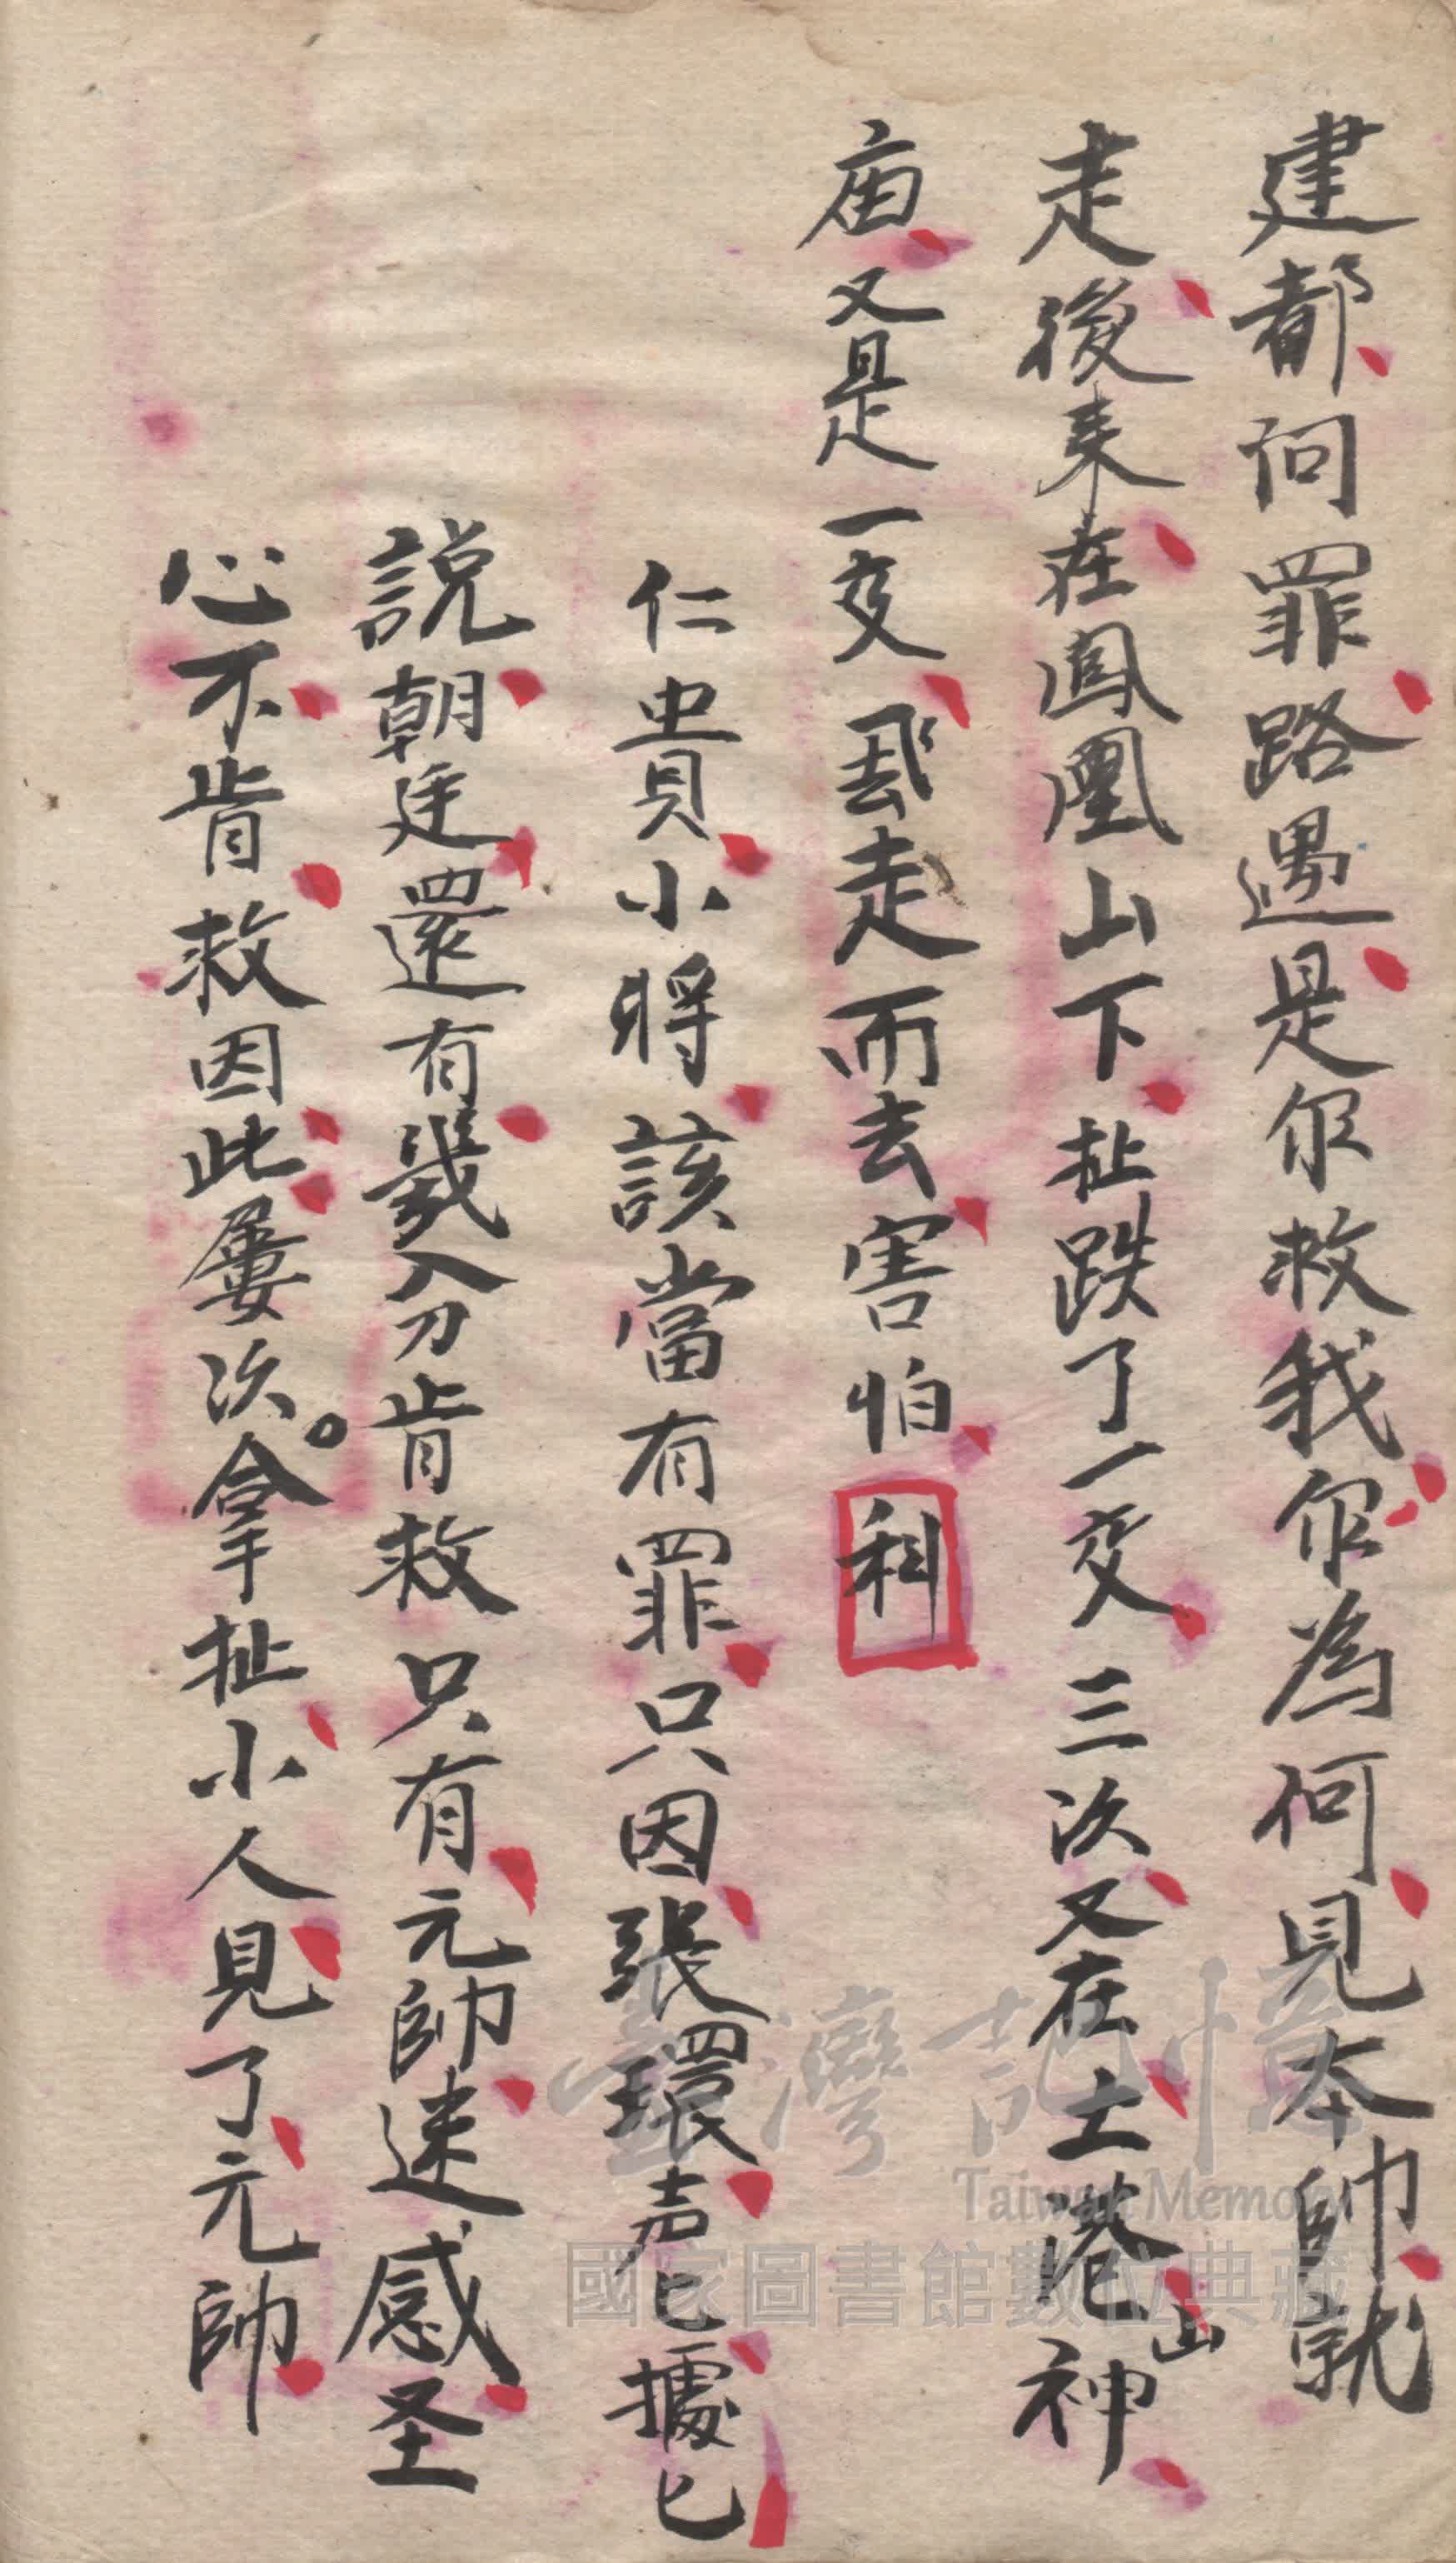 建都问罪路遇是尔救我尔為何見本帥就
走後来在鳳凰山下扯跌了一交三次又在土港山神
庙又是一交飛走而去害怕科
仁貴小將該當有罪只因張環声匕據匕
説朝廷還有幾分肯救只有元帥迷感圣
心不肯救因此屢次。拿扯小人見了元帥
臺灣記憶
Taiwan Memory
國家圖書館數位典藏